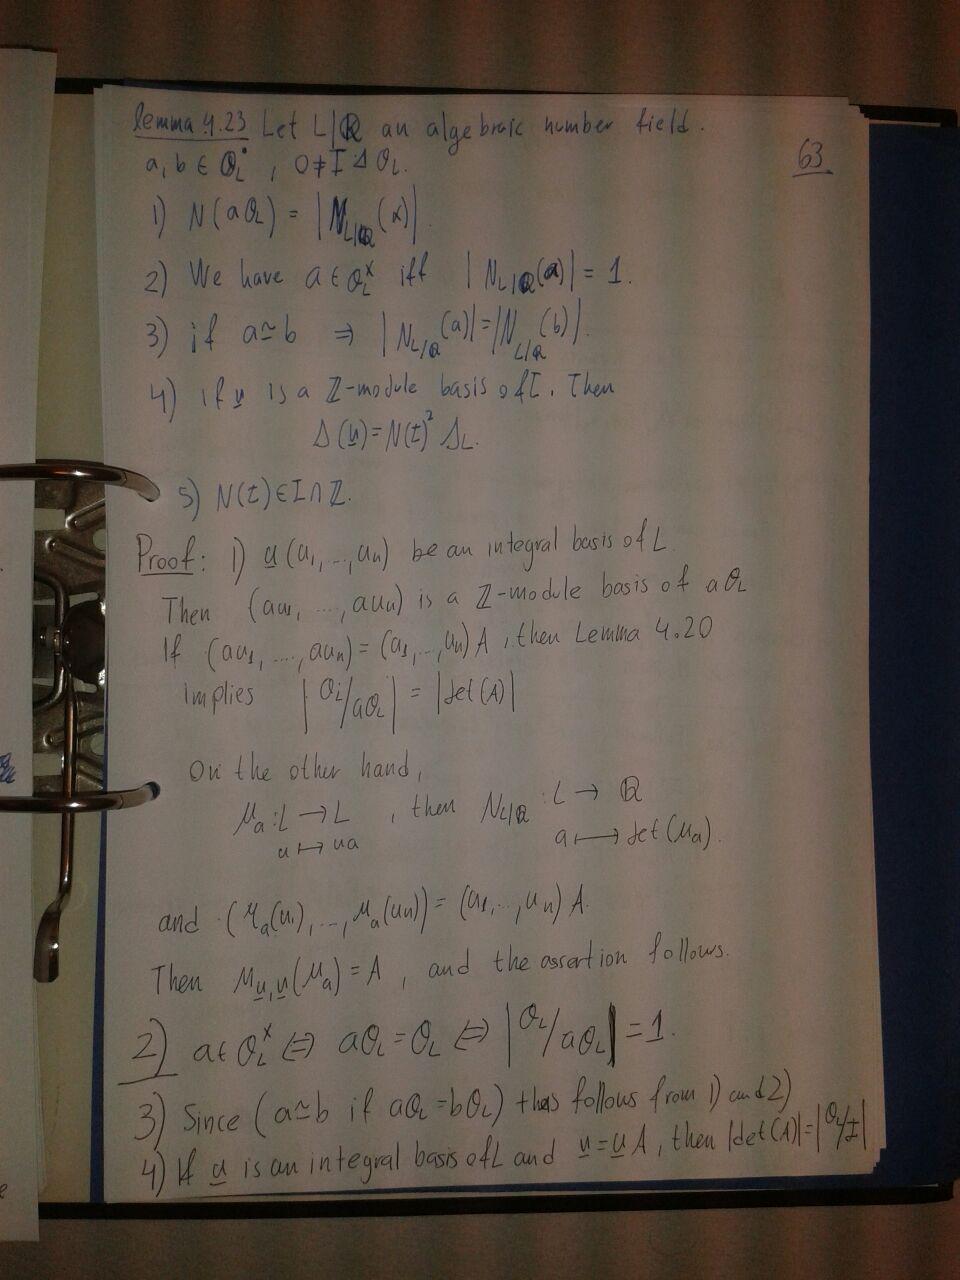 lemma 4.23 Let L|ℚ an algebraic number field.
63
a, b ∈ O_L^•, 0 ≠ I ⊲ O_L.
1) N(aO_L) = |N_{L|ℚ}(α)|
2) We have a ∈ O_L^× iff |N_{L|ℚ}(a)| = 1.
3) if a ≃ b ⇒ |N_{L/ℚ}(a)| = |N_{L/ℚ}(b)|.
4) if v is a ℤ-module basis of I. Then
Δ(v) = N(I)² Δ_L.
5) N(I) ∈ I ∩ ℤ.
Proof: 1) u (u₁, ..., uₙ) be an integral basis of L.
Then (au₁, ..., auₙ) is a ℤ-module basis of aO_L
If (au₁, ..., auₙ) = (u₁, .., uₙ) A, then Lemma 4.20
implies |O_L/aO_L| = |det(A)|
On the other hand,
μ_a : L → L, then N_{L|ℚ} : L → ℚ
u ↦ ua a ↦ det(μ_a).
and (μ_a(u₁), ..., μ_a(uₙ)) = (u₁, .., uₙ) A.
Then M_{u,u}(μ_a) = A, and the assertion follows.
2) a ∈ O_L^× ⇔ aO_L = O_L ⇔ |O_L/aO_L| = 1.
3) Since (a ≃ b if aO_L = bO_L) this follows from 1) and 2)
4) If u is an integral basis of L and v = u A, then |det(A)| = |O_L/I|